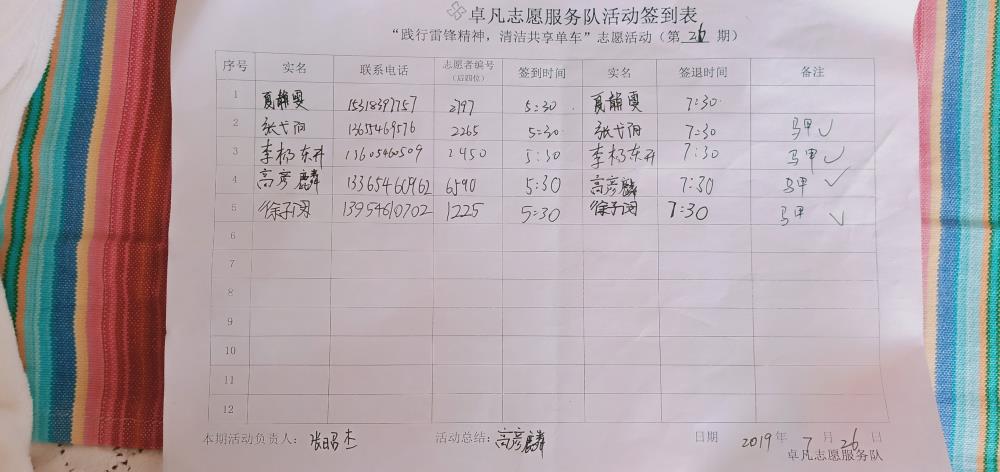 卓凡志愿服务队活动签到表
“践行雷锋精神，清洁共享单车”志愿活动（第 26 期）
序号 实名 联系电话 志愿者编号（后四位） 签到时间 实名 签退时间 备注
1 夏静雯 15318397757 2797 5:30 夏静雯 7:30
2 张弋阳 13655469576 2265 5:30 张弋阳 7:30 马甲 ✓
3 李杨东升 13605460509 2450 5:30 李杨东升 7:30 马甲 ✓
4 高彦麟 13365460962 6590 5:30 高彦麟 7:30 马甲 ✓
5 徐子 13954610702 1225 5:30 徐子 7:30 马甲 ✓
6
7
8
9
10
11
12
本期活动负责人： 张昭杰 活动总结： 高彦麟 日期 2019 年 7 月 26 日
卓凡志愿服务队